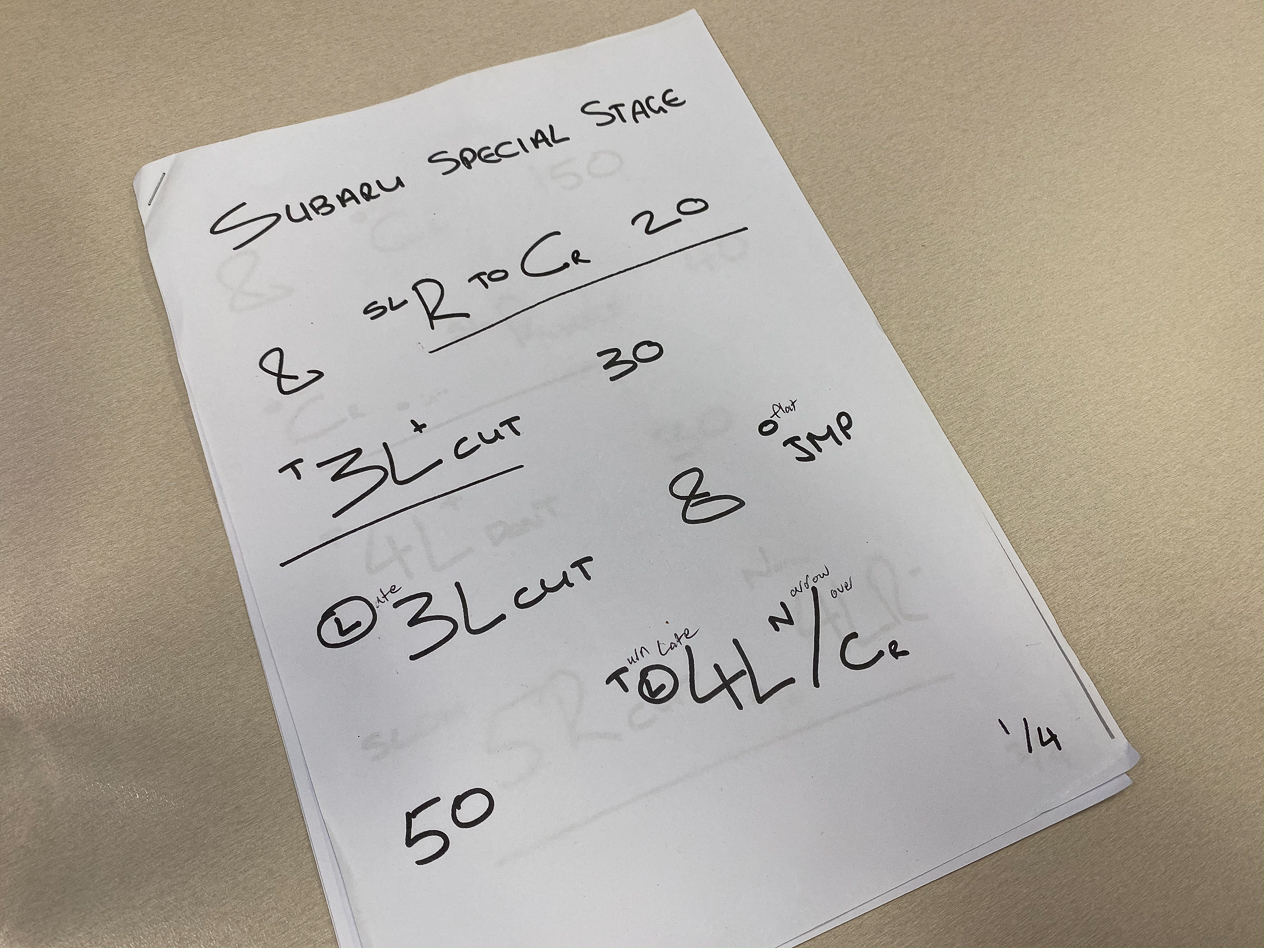 SUBARU SPECIAL STAGE
& SL R TO CR 20
T 3L+ CUT 30
L ate 3L CUT & o flat JMP
T urn L Late 4L N arrow / over CR
50
1/4